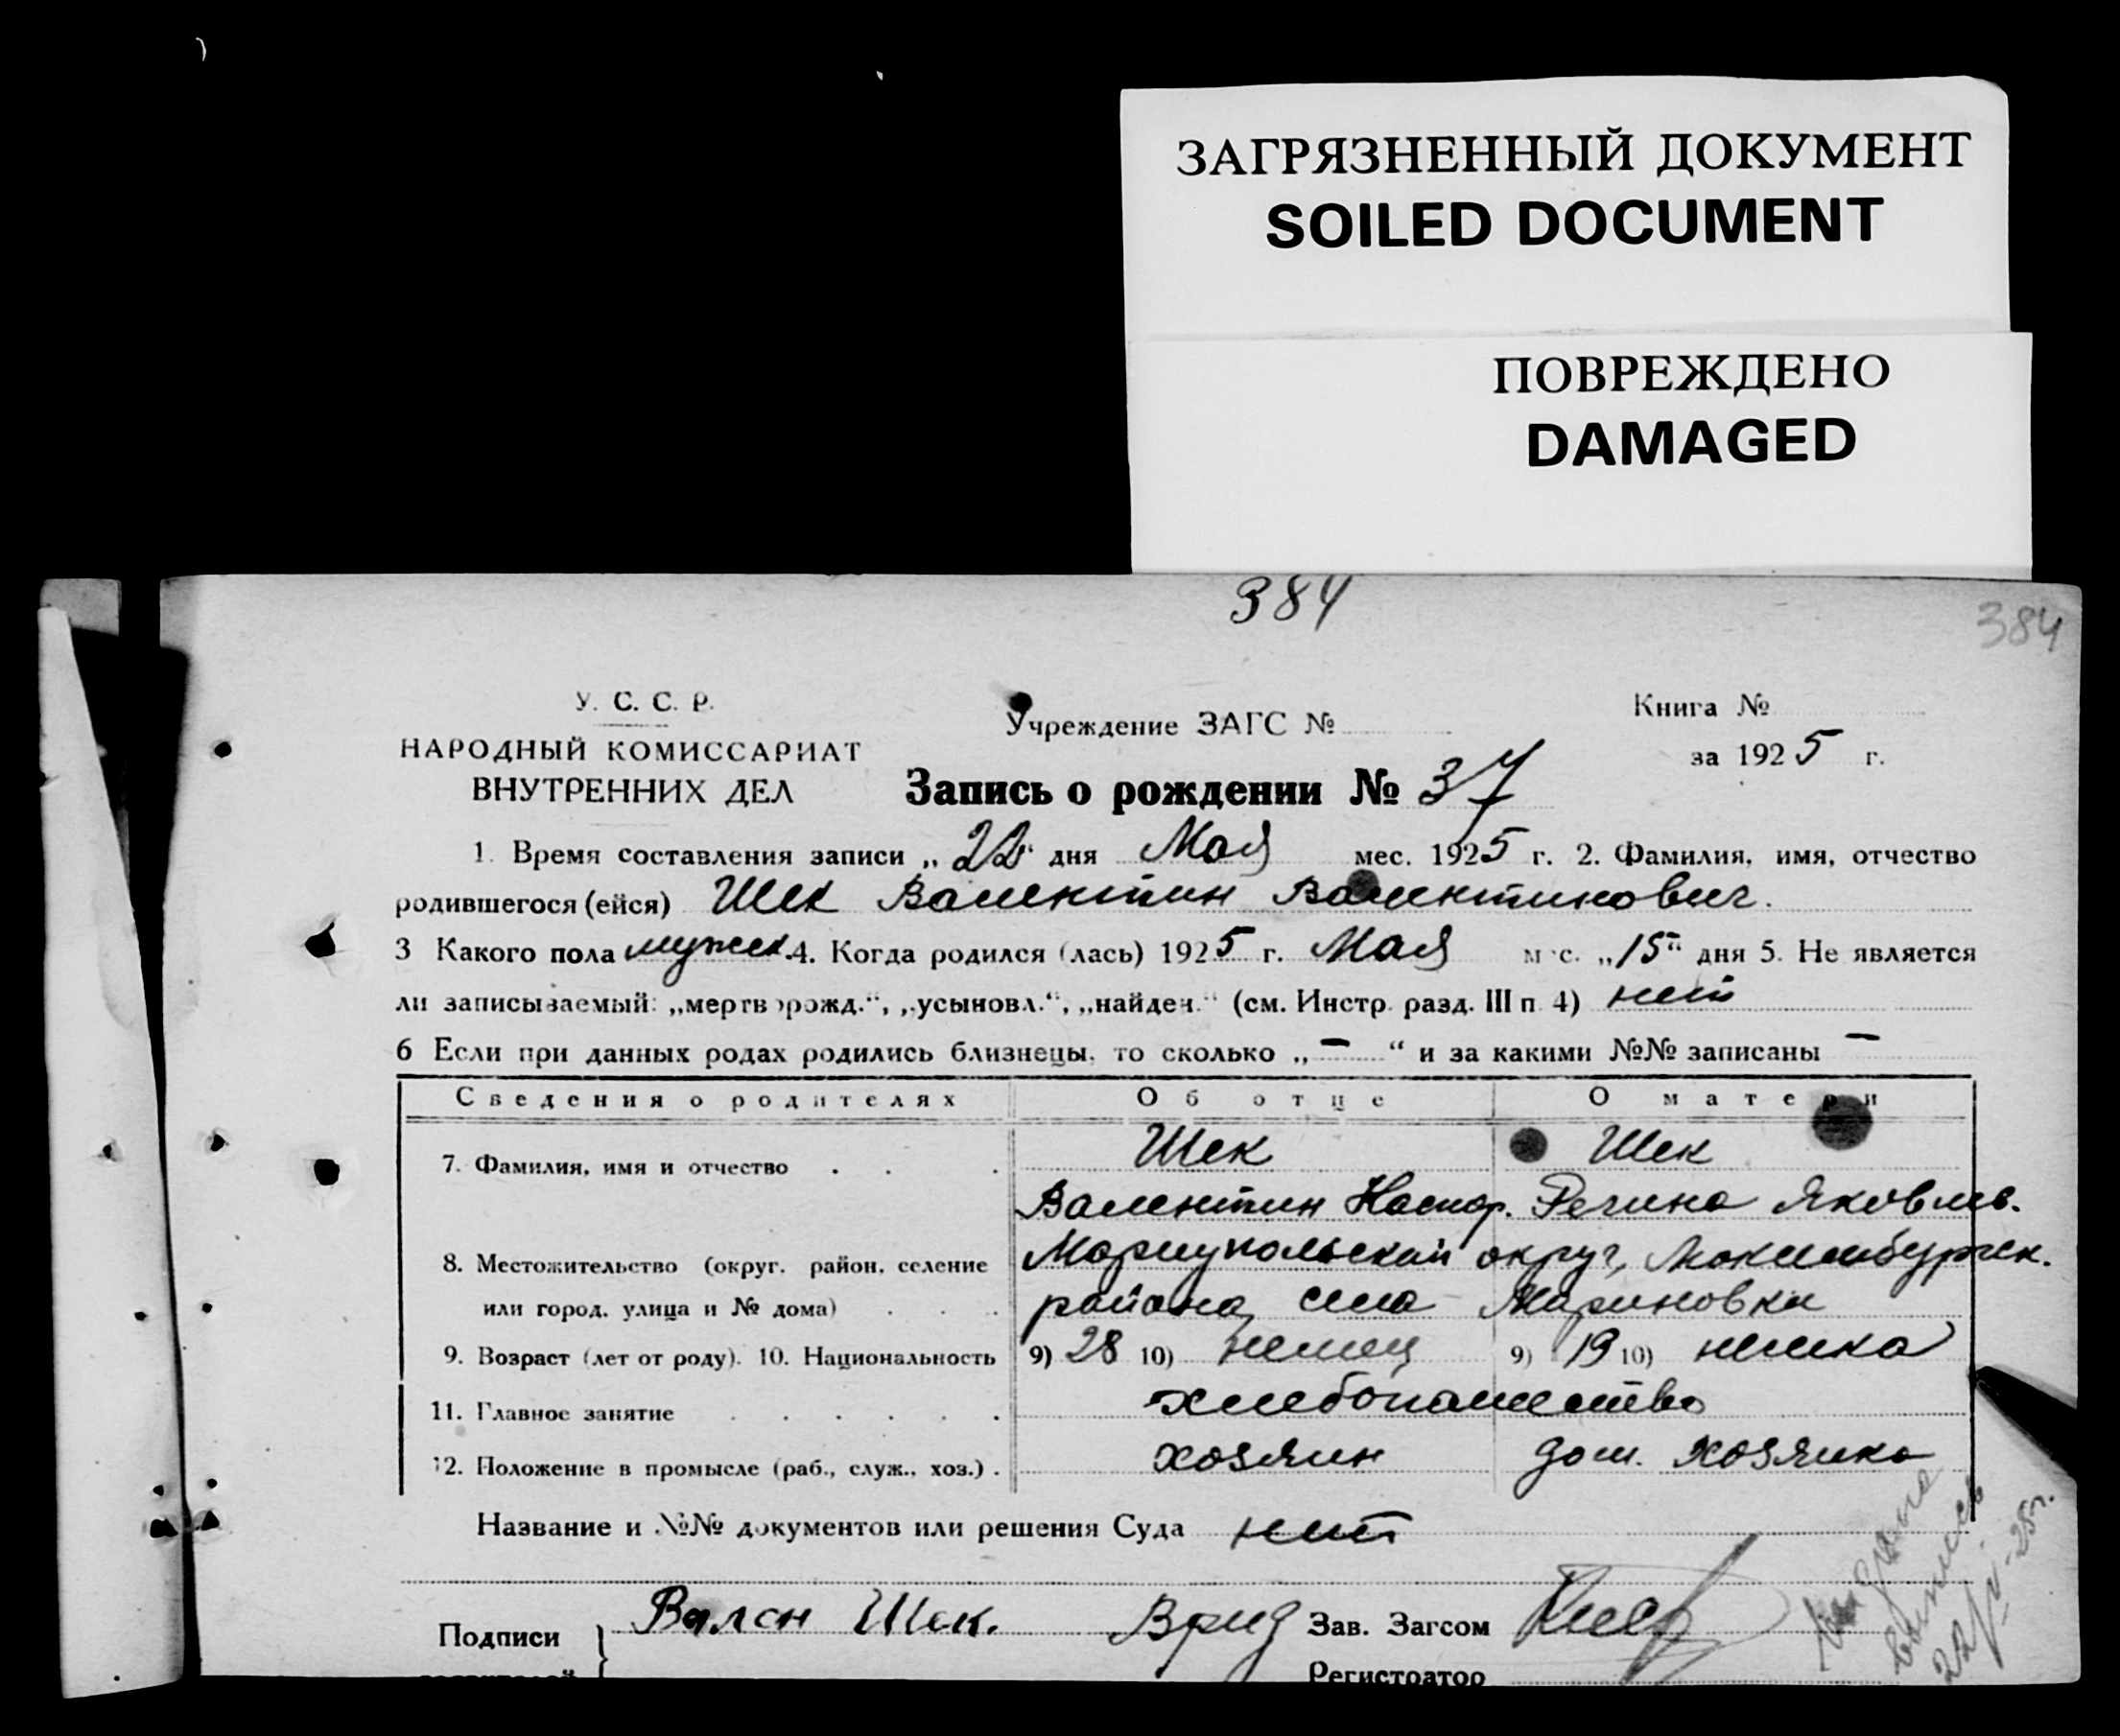 ЗАГРЯЗНЕННЫЙ ДОКУМЕНТ
SOILED DOCUMENT
ПОВРЕЖДЕНО
DAMAGED
384
384
У. С. С. Р.
НАРОДНЫЙ КОМИССАРИАТ
ВНУТРЕННИХ ДЕЛ
Учреждение ЗАГС №
Книга №
за 1925 г.
Запись о рождении № 37
1. Время составления записи „22“ дня Мая мес. 1925 г. 2. Фамилия, имя, отчество
родившегося (ейся) Шек Валентин Валентинович.
3 Какого пола мужск. 4. Когда родился (лась) 1925 г. Мая мес. „15“ дня 5. Не является
ли записываемый: „мертворожд.“, „усыновл.“, „найден.“ (см. Инстр. разд. III п. 4) нет
6 Если при данных родах родились близнецы, то сколько „—“ и за какими №№ записаны —
Сведения о родителях Об отце О матери
7. Фамилия, имя и отчество Шек Шек
Валентин Каспар. Регина Яковлев.
8. Местожительство (округ, район, селение Мариупольский округ,
или город, улица и № дома) района, села Мариновки
9. Возраст (лет от роду). 10. Национальность 9) 28 10) немец 9) 19 10) немка
11. Главное занятие хлебопашество
12. Положение в промысле (раб., служ., хоз.) хозяин дом. хозяйка
Название и №№ документов или решения Суда нет
Подписи Вален Шек. Врид Зав. Загсом
Регистратор
выпись
22/V-25г.